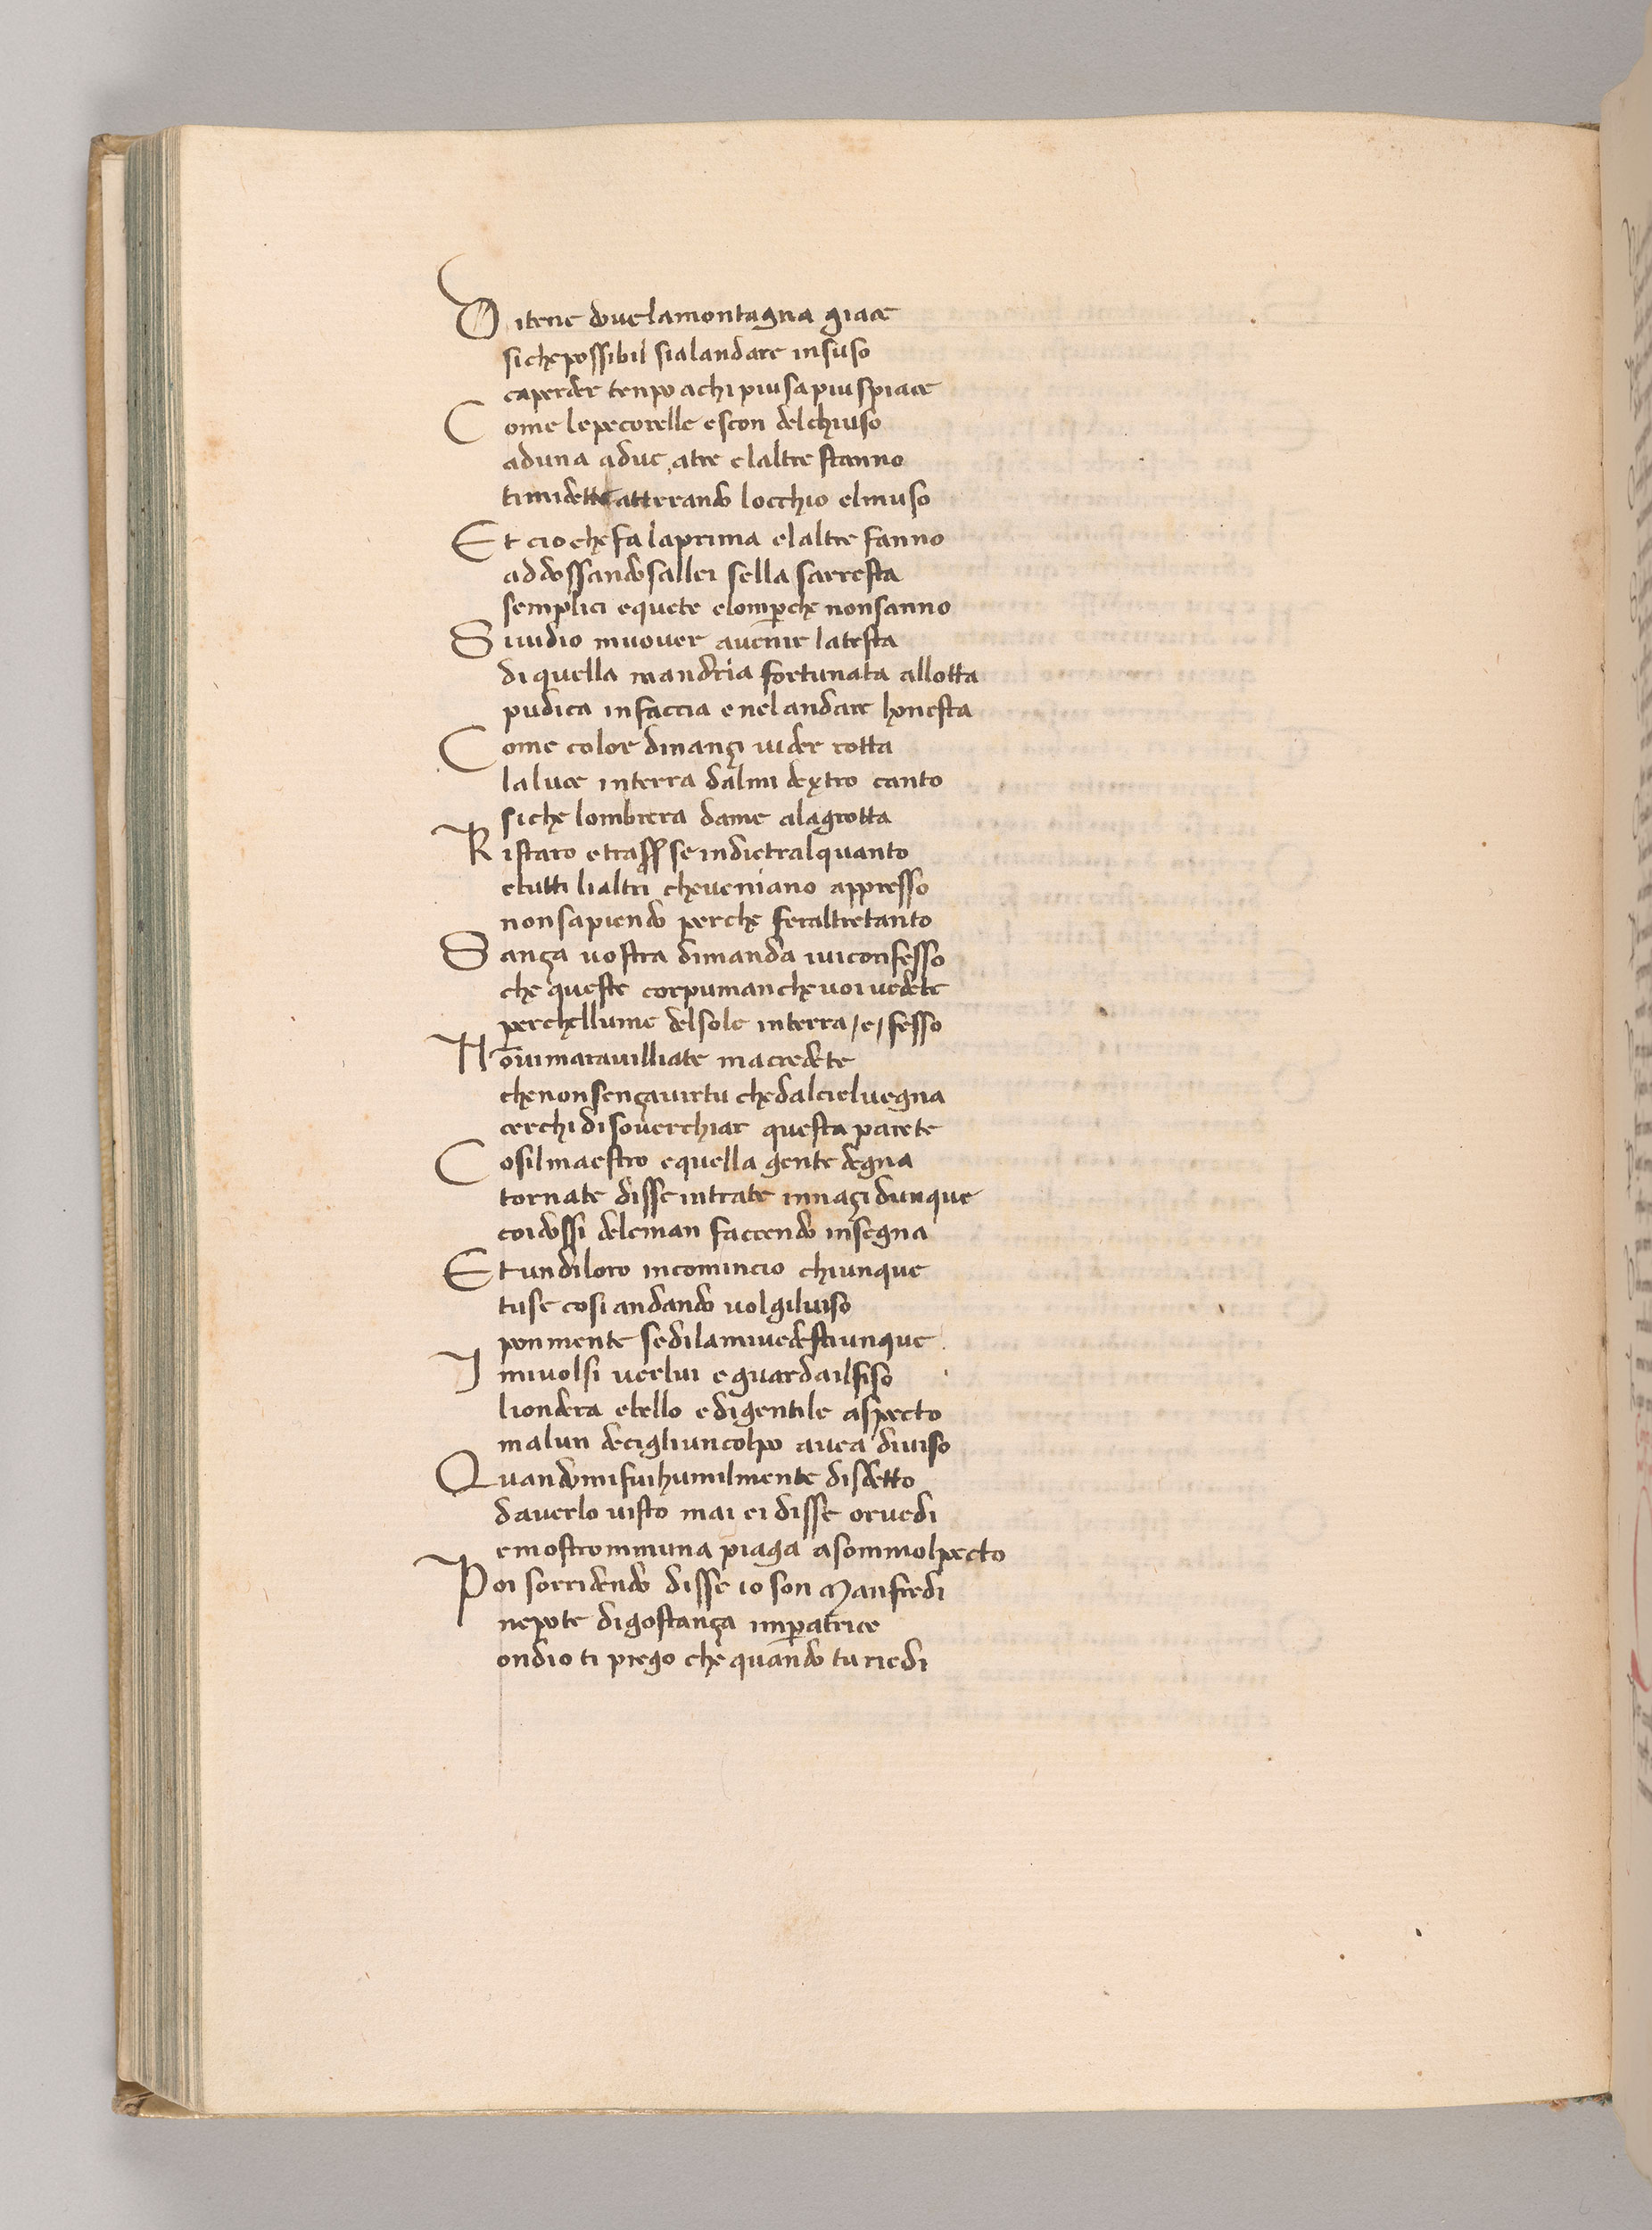 Ditene dovelamontagna giace
sichepossibil sialandare insuso
caperder tenpo achi piusapiuspiace
Come lepecorelle escon delchiuso
aduna adue atre elaltre stanno
timidette atterrando locchio elmuso
Et cio chefa laprima elaltre fanno
addossandosallei sella sarresta
semplici equete elomp̄che nonsanno
Siuidio muover avenir̄ latesta
diquella mandria fortunata allotta
pudica infaccia enelandare honesta
Come color dinançi uider rotta
laluce interra dalmi dextro canto
siche lombrera dame alagrotta
Ristaro etrasser se indietralquanto
etutti lialtri cheveniano appresso
nonsapiendo perche feraltretanto
Sança uostra dimanda iuiconfesso
che queste corpumanchevoi vedete
perchellume delsole interra /e/ fesso
Nōvimaravilliate macredete
chenonsençavirtu chedalcielvegna
cerchi disoverchiar questa parete
Cosilmaestro equella gente degna
tornate disse intrate innaçi dunque
coidossi deleman faccendo insegna
Et undiloro incomincio chiunque
tuse cosi andando volgilviso
ponmente sedilamivedestiunque
Imivolsi verlui eguardailfiso
biondera ebello edigentile aspecto
malun decigliuncolpo avea diviso
Quandomifuihumilmente disdetto
daverlo visto mai ei disse orvedi
emostrommiuna piaga asommolpecto
Poi sorridendo disse io son Manfredi
nepote digostança imp̄atrice
ondio ti priego che quando tu riedi